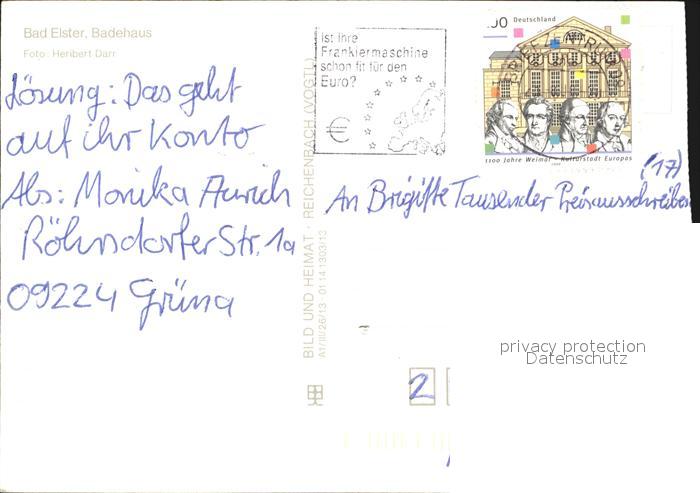 Bad Elster, Badehaus
Foto: Heribert Darr
Lösung: Das geht
auf ihr Konto
Abs: Monika Aurich
Röhrsdorfer Str. 1a
09224 Grüna
BILD UND HEIMAT · REICHENBACH (VOGTL)
A1/III/26/13 01 14 1303/13
Ist Ihre
Frankiermaschine
schon fit für den
Euro?
€
00 Deutschland
1100 Jahre Weimar – Kulturstadt Europas
(17)
An Brigitte Tausender Preisausschreiben
privacy protection
Datenschutz
2